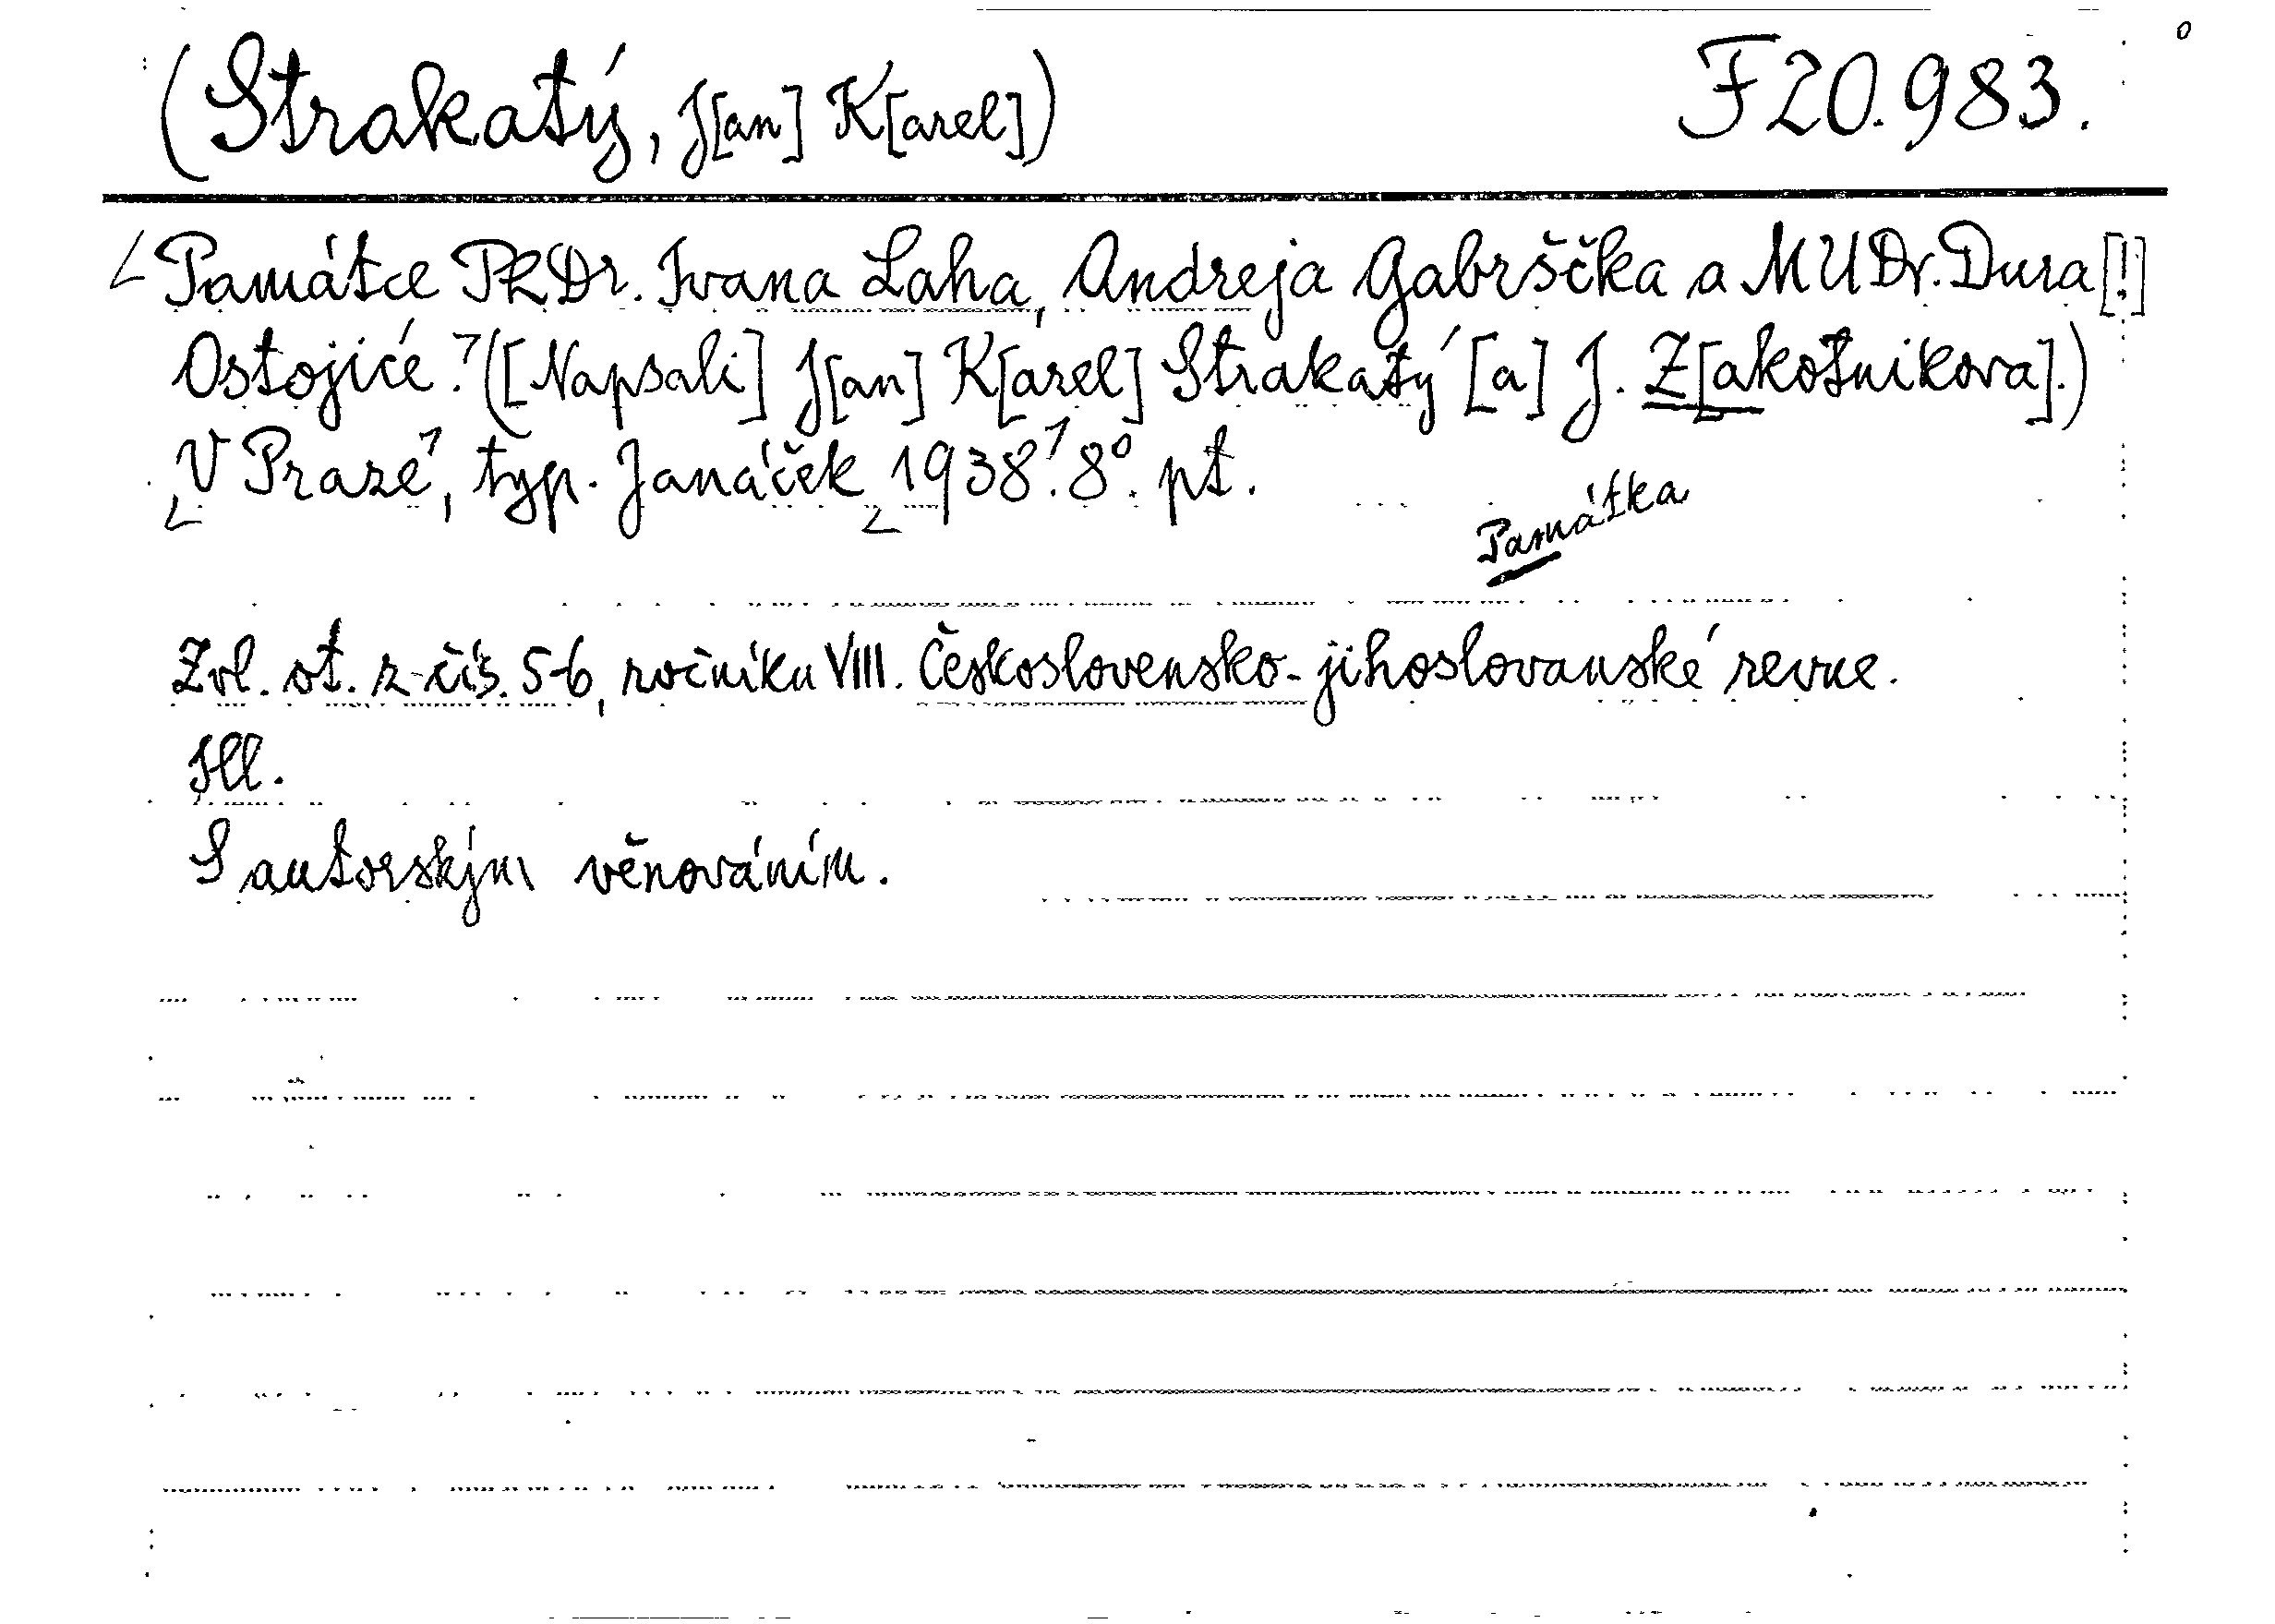 (Strakatý, J[an] K[arel]) F 20.983.
Památce PhDr. Ivana Laha, Andreja Gabrščka a MUDr. Dura [!]
Ostojiće. ([Napsali] J[an] K[arel] Strakatý [a] J. Z[akotnikova].)
V Praze, typ. Janáček 1938. 8°. pt.
Památka
Zvl. ot. z čís. 5-6, ročníku VIII. Československo-jihoslovanské revue.
Ill.
S autorským věnováním.